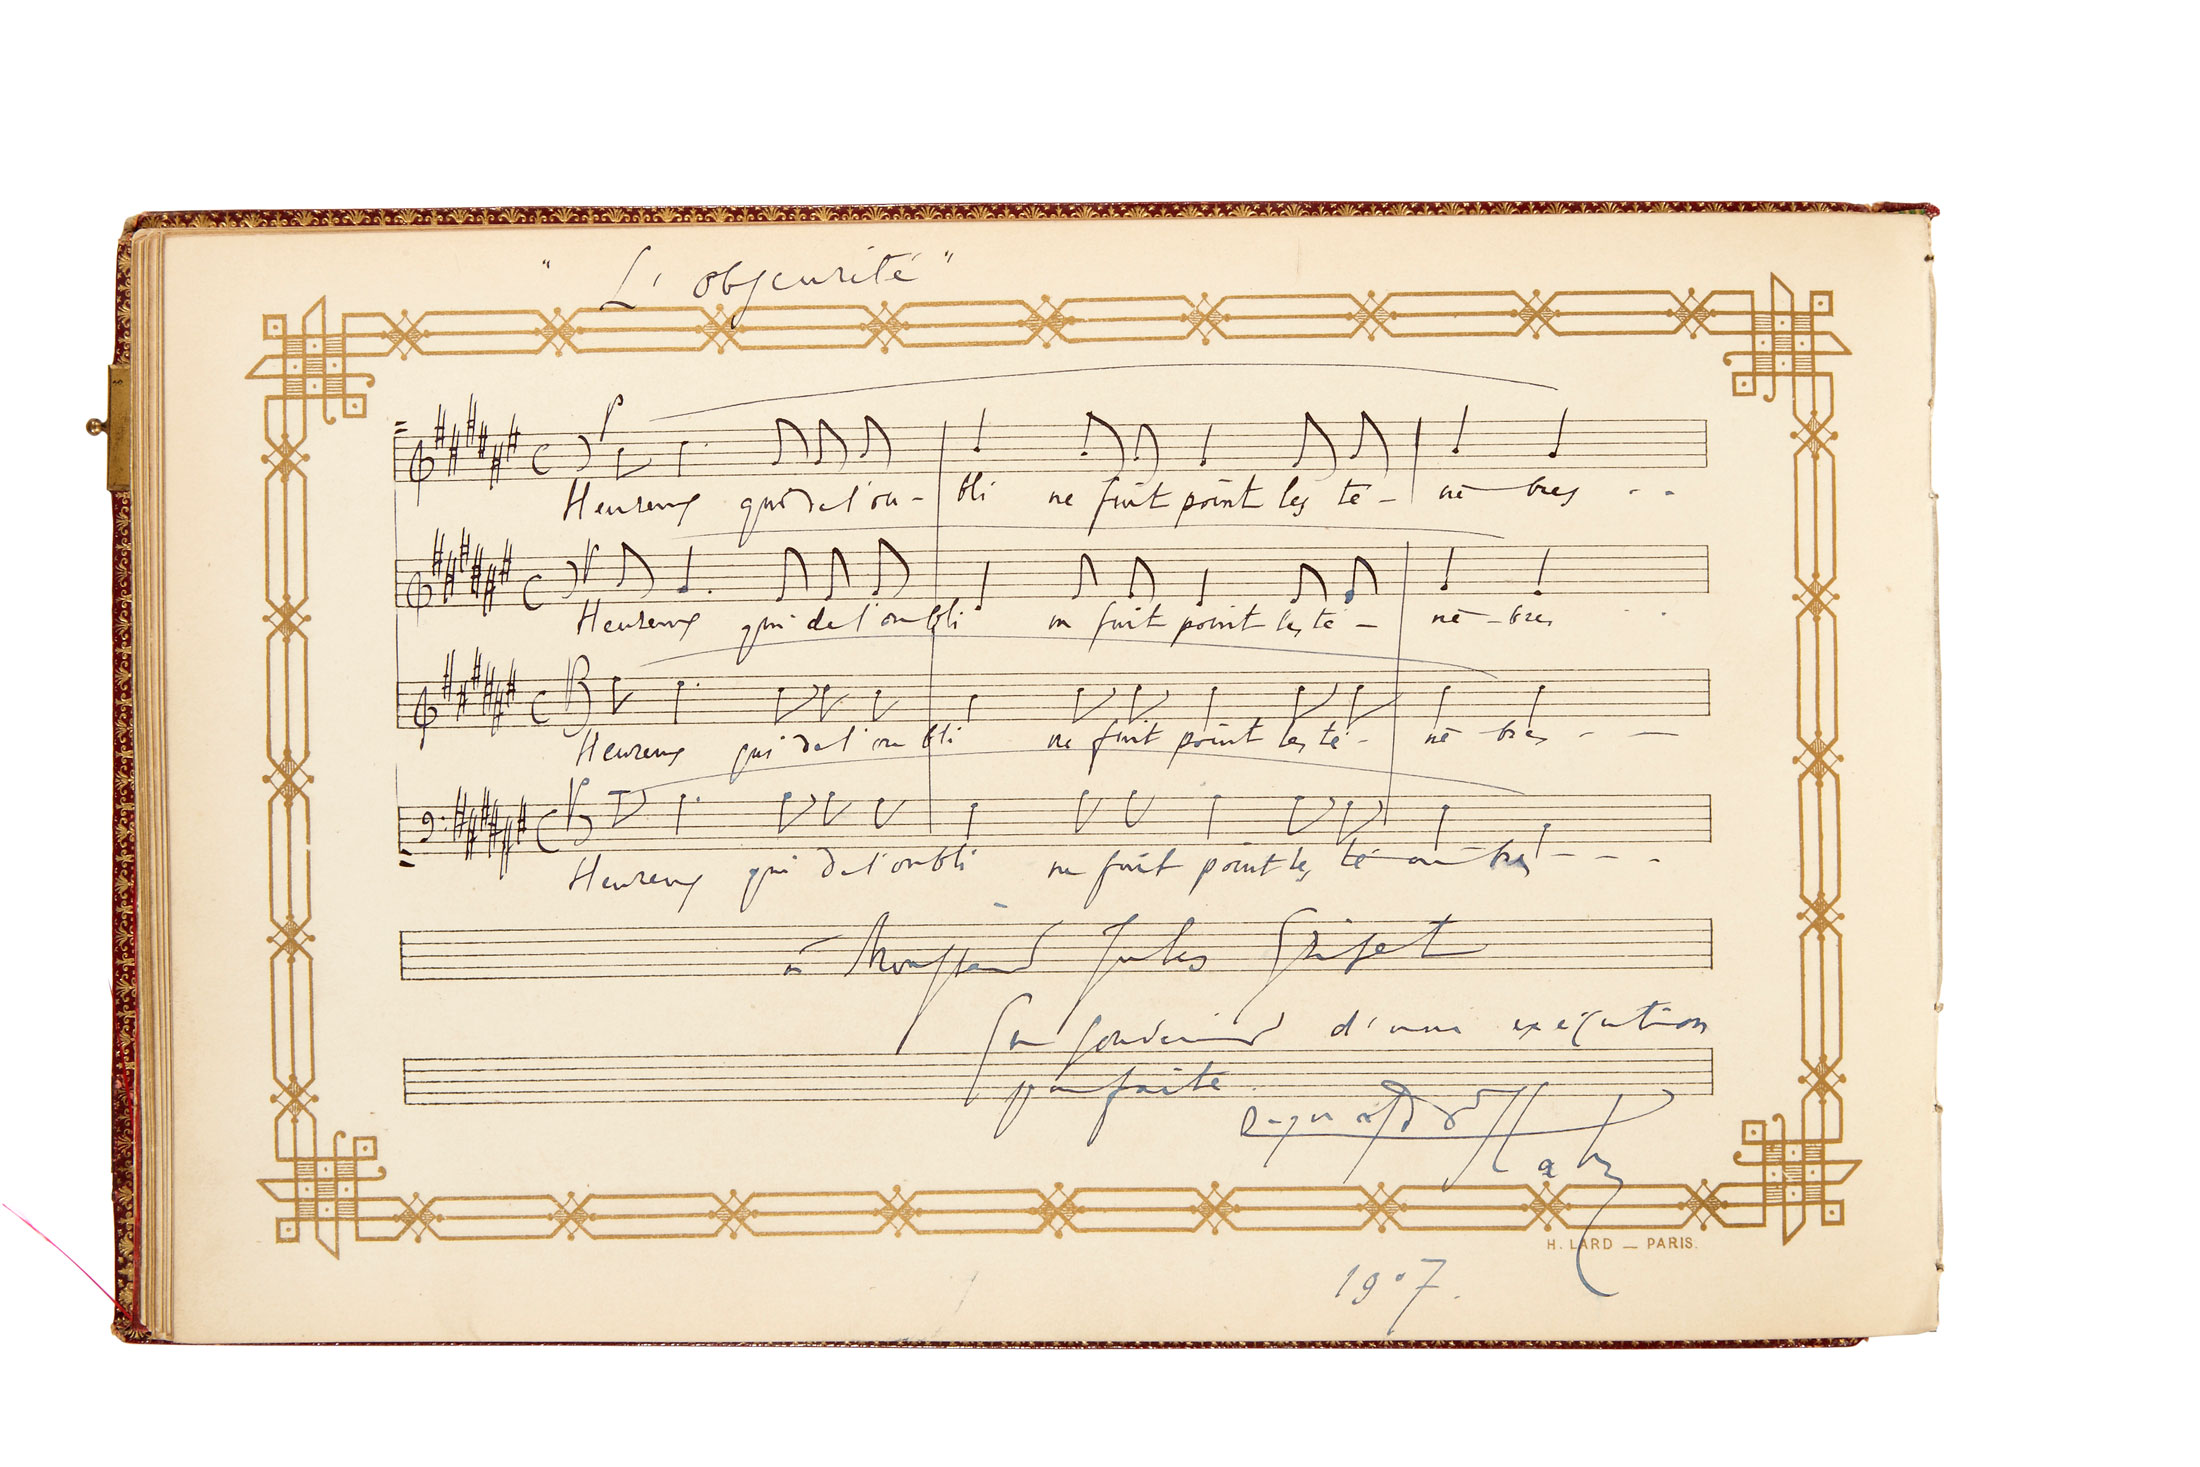 " L'obscurité "
Heureux qui de l'ou - bli ne fuit point les té - nè - bres - -
Heureux qui de l'oubli ne fuit point les té - nè - bres
Heureux qui de l'oubli ne fuit point les té - nè - bres - -
Heureux qui de l'oubli ne fuit point les té - nè - bres - - -
à Monsieur Jules Griset
En souvenir d'une exécution
parfaite.
Reynaldo Hahn
H. LARD — PARIS.
1907.